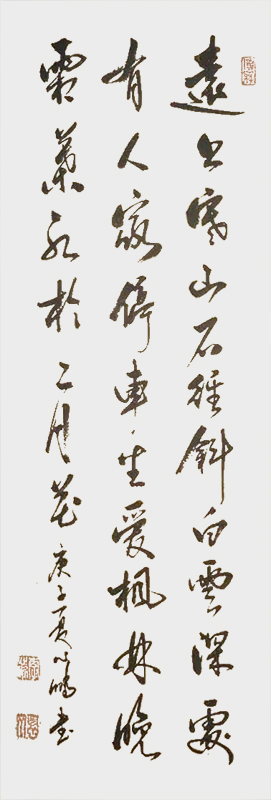 遠上寒山石徑斜白雲深處
有人家停車坐愛楓林晚
霜葉紅於二月花 庚子夏